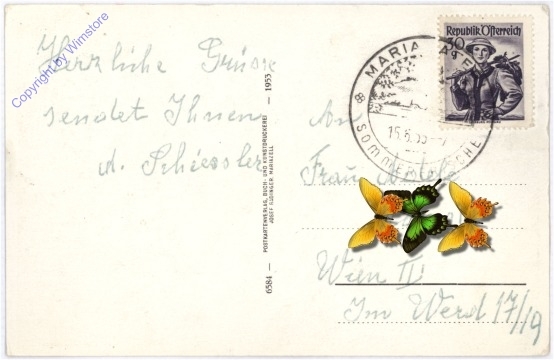 Copyright by Wimstore
Herzliche Grüsse
sendet Ihnen
A. Schiessler
6584 — POSTKARTENVERLAG, BUCH- UND KUNSTDRUCKEREI JOSEF MARIAZELL — 1953
Republik Österreich
MARIA
15.6.
SOMM
An
Frau
Wien II
Im Werd 17/19